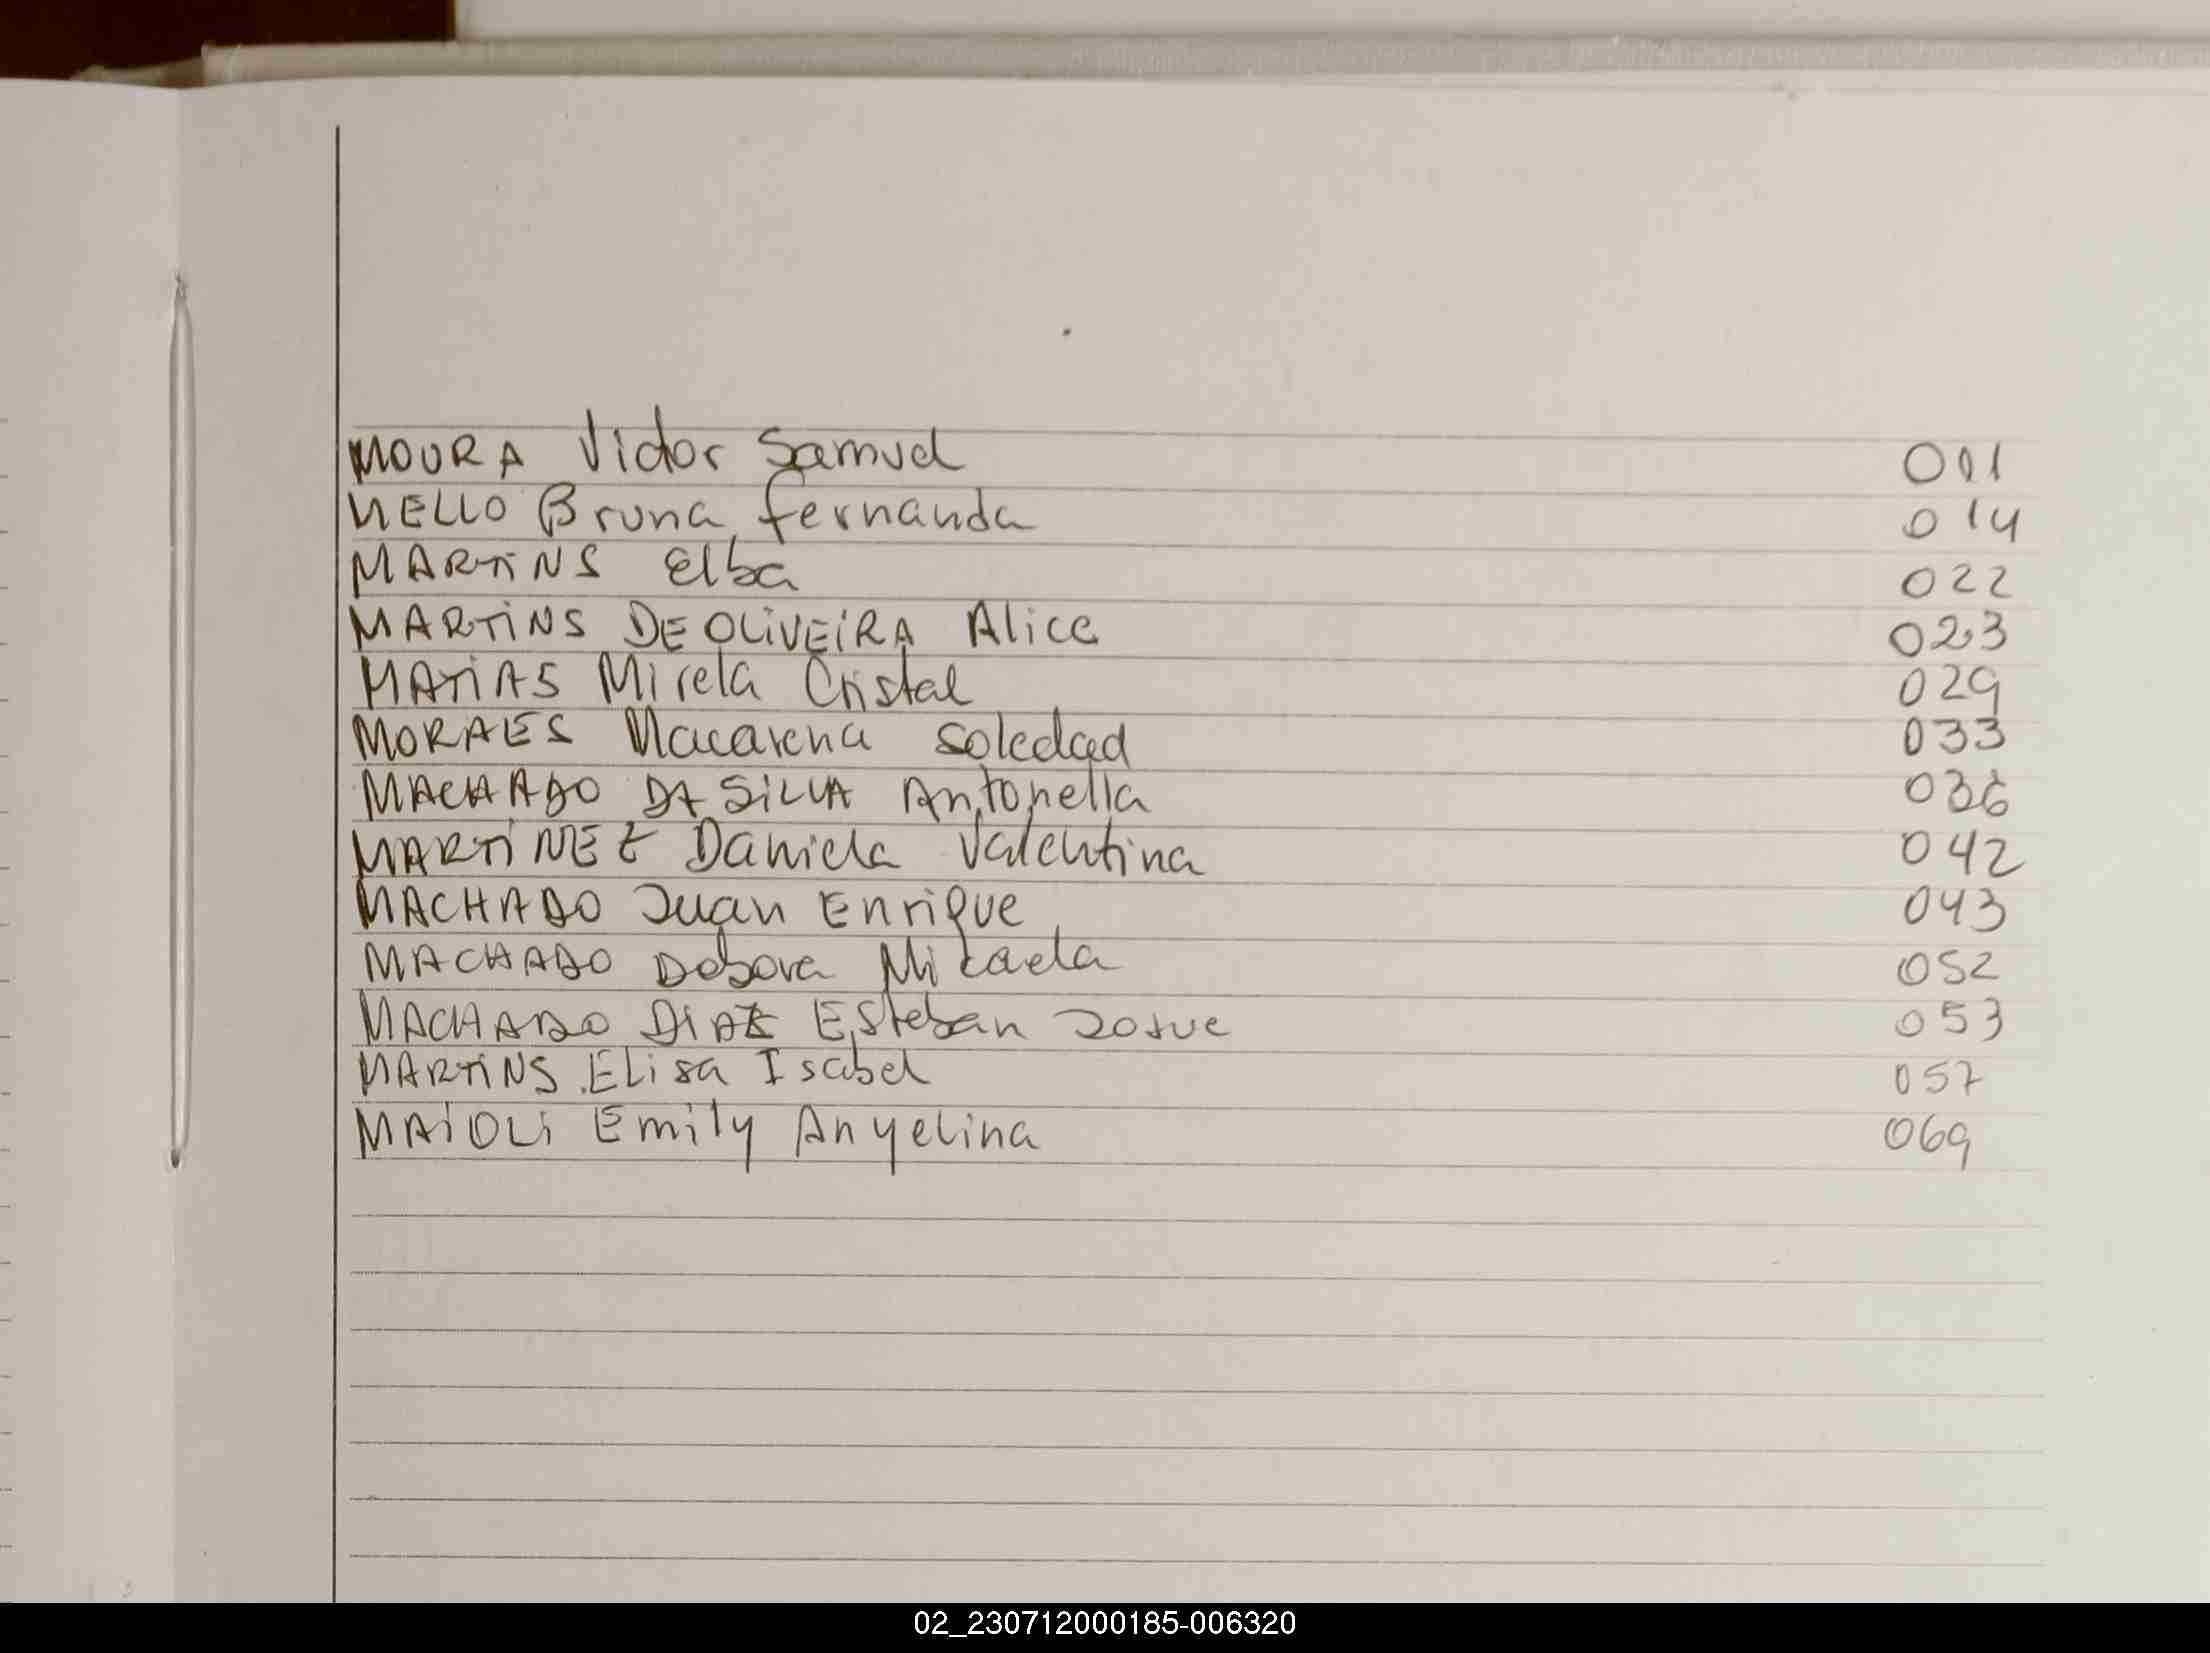 MOURA Victor Samuel 011
MELLO Bruna Fernanda 014
MARTINS Elba 022
MARTINS DE OLIVEIRA Alice 023
MATIAS Mirela Cristal 029
MORAES Macarena Soledad 033
MACHADO DA SILVA Antonella 036
MARTINEZ Daniela Valentina 042
MACHADO Juan Enrique 043
MACHADO Debora Micaela 052
MACHADO DIAZ Esteban Josue 053
MARTINS Elisa Isabel 057
MAIOLI Emily Anyelina 069
02_230712000185-006320